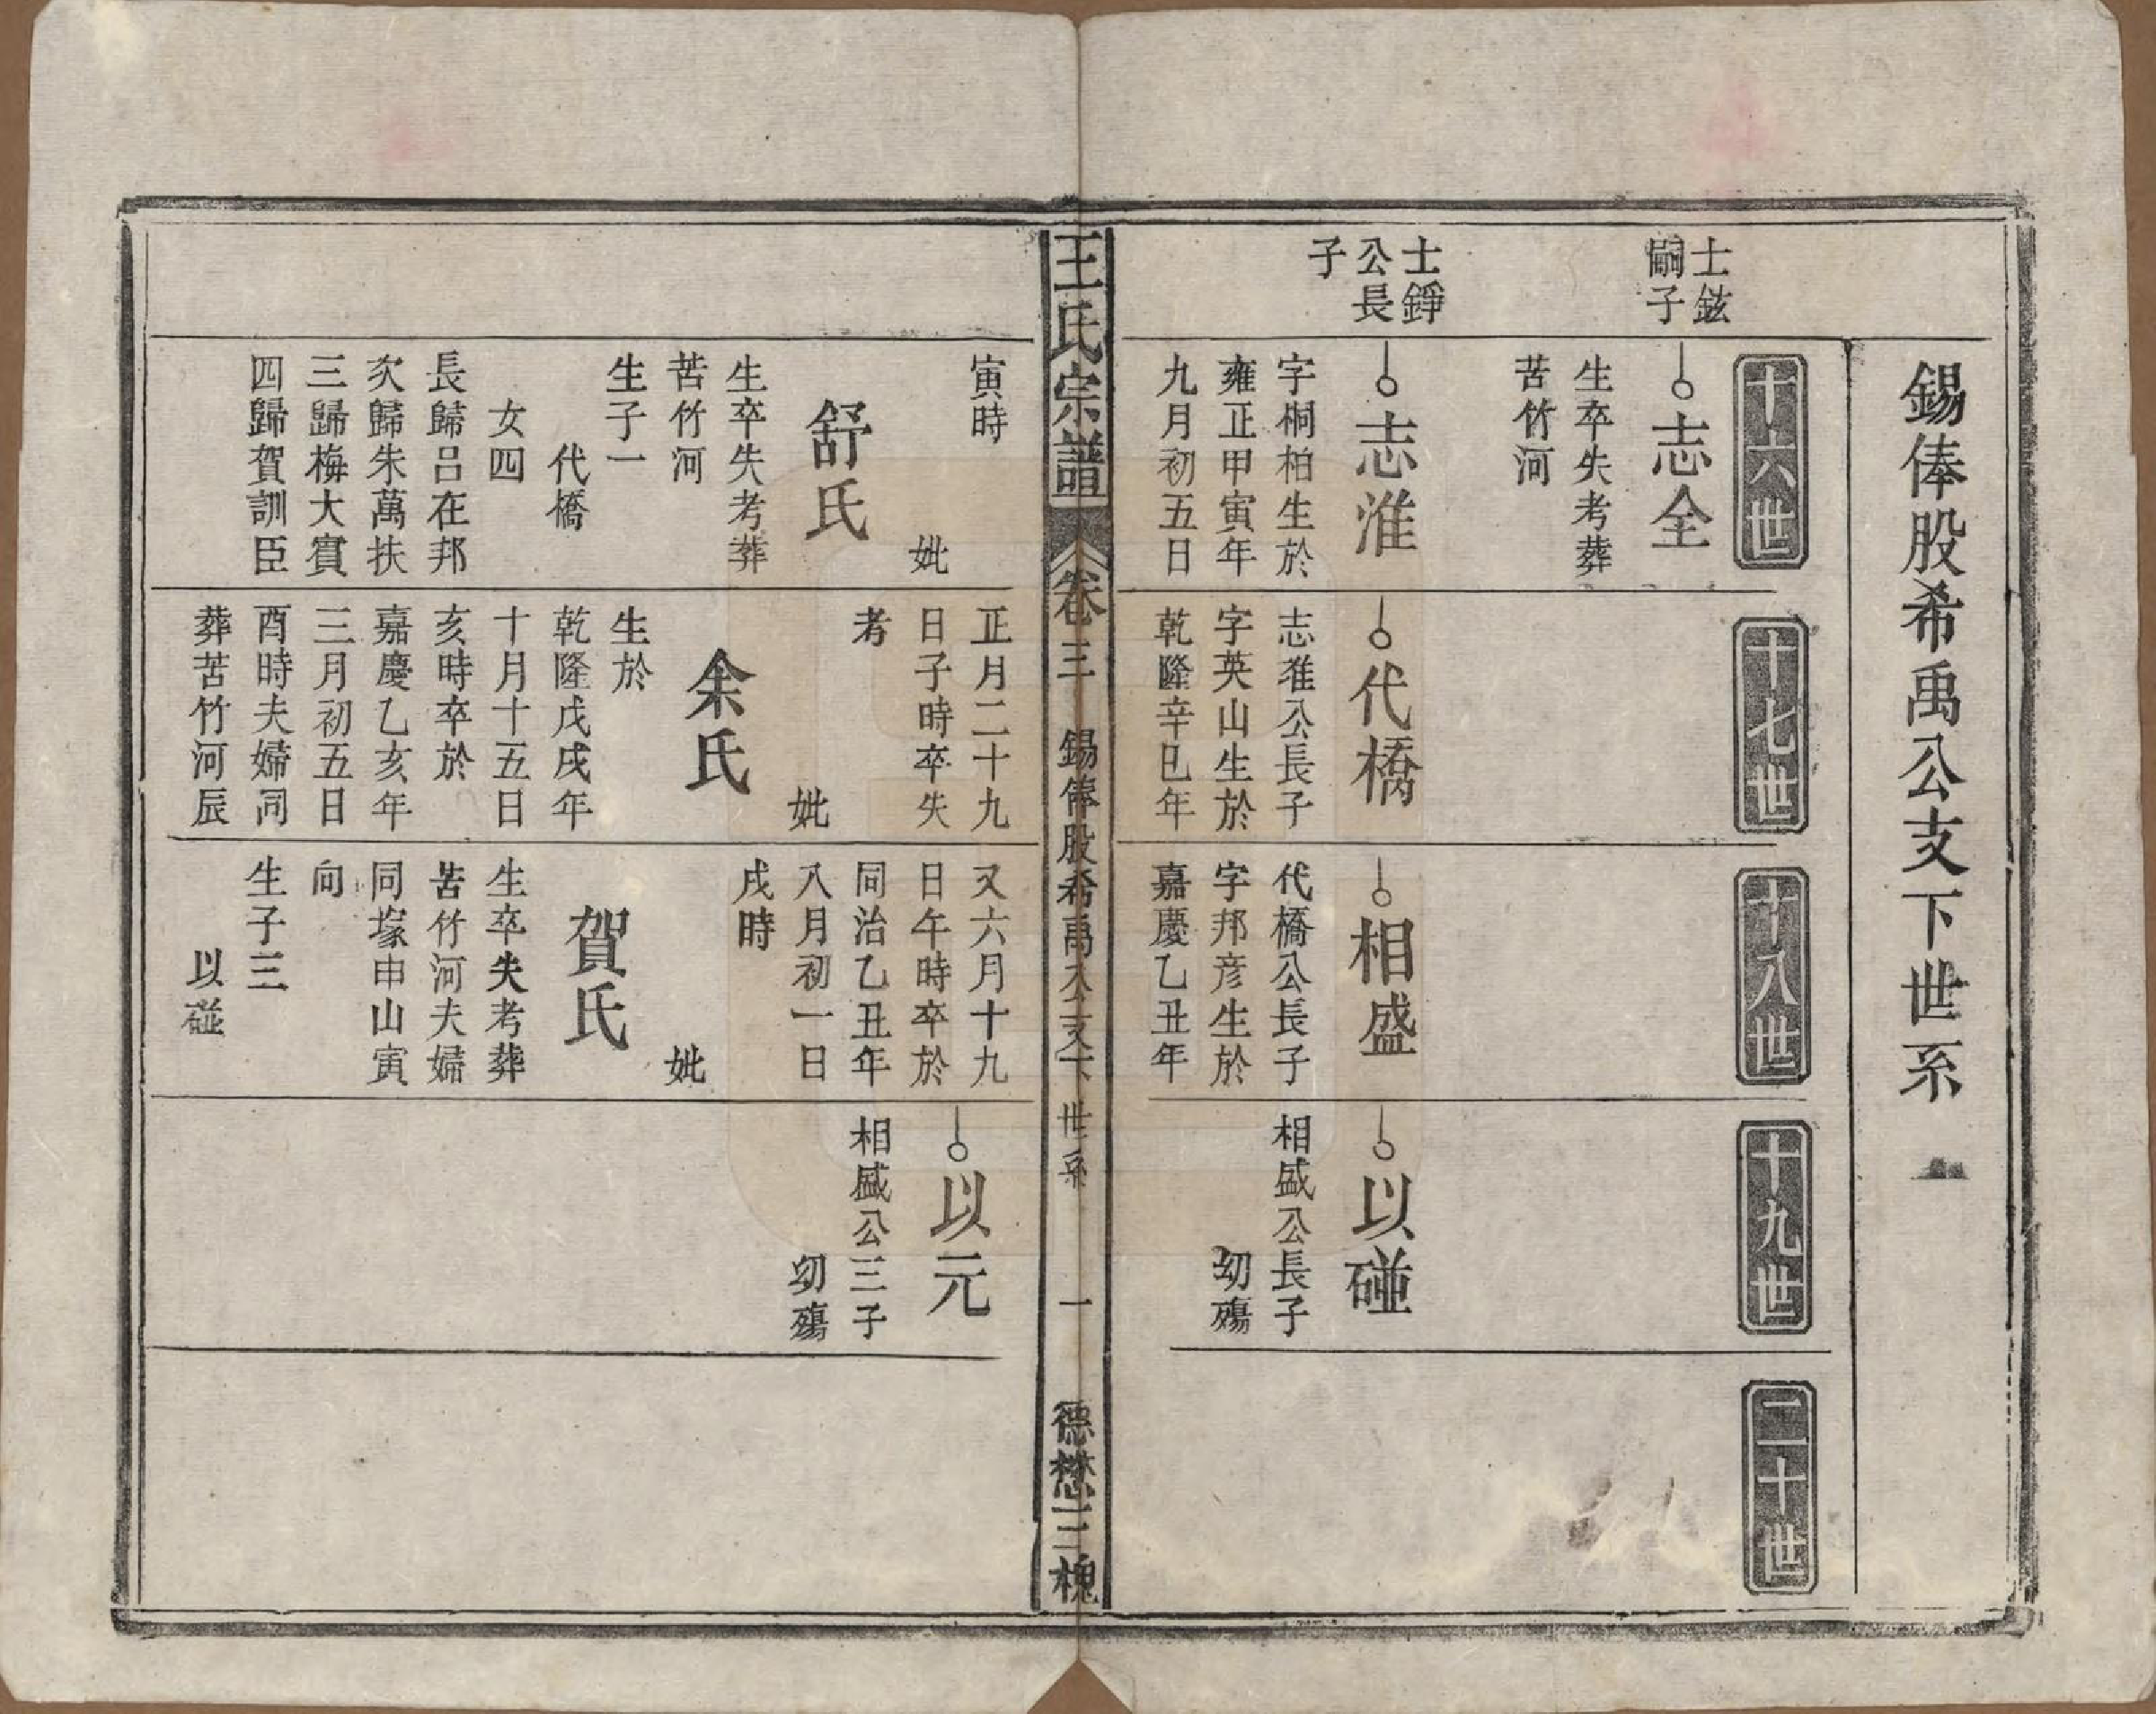 錫俸股希禹公支下世系
十六世
十七世
十八世
十九世
二十世
士鉉
嗣子
志全
生卒失考葬
苦竹河
士錚
公長
子
志淮
字桐柏生於
雍正甲寅年
九月初五日
代橋
志淮公長子
字英山生於
乾隆辛巳年
相盛
代橋公長子
字邦彦生於
嘉慶乙丑年
以碰
相盛公長子
幼殤
王氏宗譜
卷三
錫俸股希禹公支下世系
一
德懋三槐
寅時
妣
舒氏
生卒失考葬
苦竹河
生子一
代橋
女四
長歸呂在邦
次歸朱萬扶
三歸梅大賓
四歸賀訓臣
正月二十九
日子時卒失
考
妣
余氏
生於
乾隆戊戌年
十月十五日
亥時卒於
嘉慶乙亥年
三月初五日
酉時夫婦同
葬苦竹河辰
又六月十九
日午時卒於
同治乙丑年
八月初一日
戌時
妣
賀氏
生卒失考葬
苦竹河夫婦
同塚申山寅
向
生子三
以碰
以元
相盛公三子
幼殤